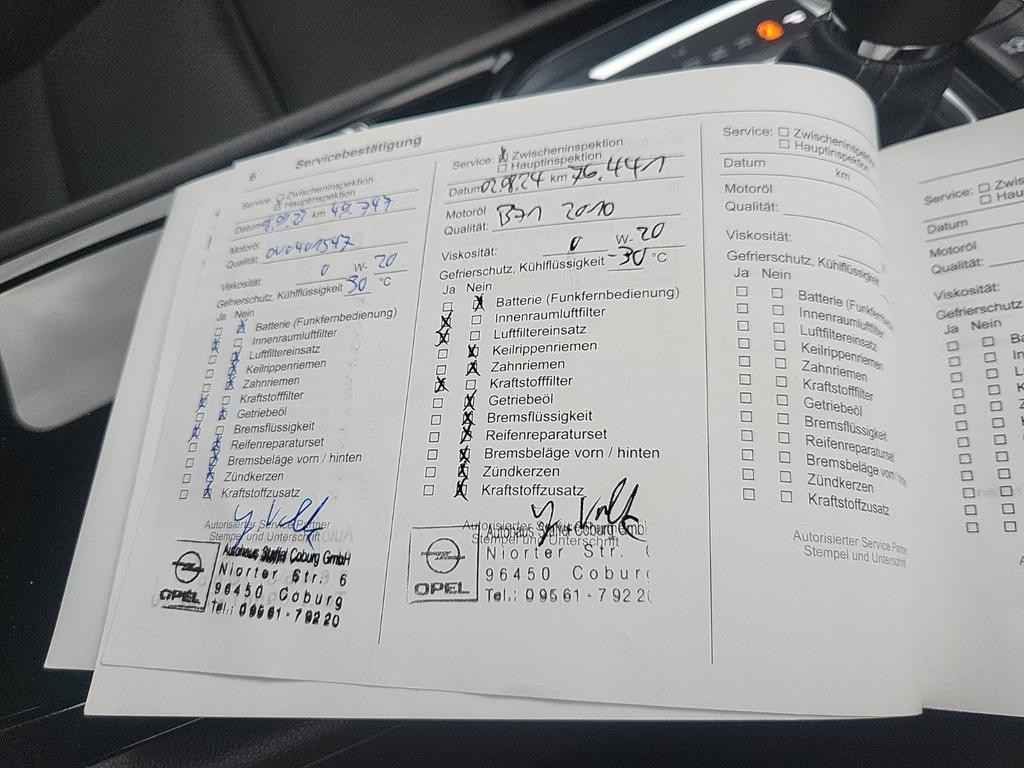 6
Servicebestätigung
Service: Zwischeninspektion
Hauptinspektion
Datum km 49.747
Motoröl
Qualität: OV0401547
Viskosität: 0 W- 20
Gefrierschutz, Kühlflüssigkeit 30 °C
Ja Nein
Batterie (Funkfernbedienung)
Innenraumluftfilter
Luftfiltereinsatz
Keilrippenriemen
Zahnriemen
Kraftstofffilter
Getriebeöl
Bremsflüssigkeit
Reifenreparaturset
Bremsbeläge vorn / hinten
Zündkerzen
Kraftstoffzusatz
Autorisierter Service Partner
Stempel und Unterschrift
Autohaus Coburg GmbH
Niorter Str. 6
96450 Coburg
OPEL
Tel.: 09561-79220
Service: Zwischeninspektion
Hauptinspektion
Datum 02.08.24 km 76.441
Motoröl
Qualität: B71 2010
Viskosität: 0 W- 20
Gefrierschutz, Kühlflüssigkeit -30 °C
Ja Nein
Batterie (Funkfernbedienung)
Innenraumluftfilter
Luftfiltereinsatz
Keilrippenriemen
Zahnriemen
Kraftstofffilter
Getriebeöl
Bremsflüssigkeit
Reifenreparaturset
Bremsbeläge vorn / hinten
Zündkerzen
Kraftstoffzusatz
Autorisierter
Stempel und Unterschrift
Autohaus Coburg GmbH
Niorter Str.
96450 Coburg
OPEL
Tel.: 09561-7922
Service: Zwischeninspektion
Hauptinspektion
Datum km
Motoröl
Qualität:
Viskosität:
Gefrierschutz, Kühlflüssigkeit
Ja Nein
Batterie (Funkfern
Innenraumluftfilter
Luftfiltereinsatz
Keilrippenriemen
Zahnriemen
Kraftstofffilter
Getriebeöl
Bremsflüssigkeit
Reifenreparaturset
Bremsbeläge vorn
Zündkerzen
Kraftstoffzusatz
Autorisierter Service Partne
Stempel und Unterschrift
Service: Zwisch
Haup
Datum
Motoröl
Qualität:
Viskosität:
Gefrierschutz
Ja Nein
Ba
In
L
K
Z